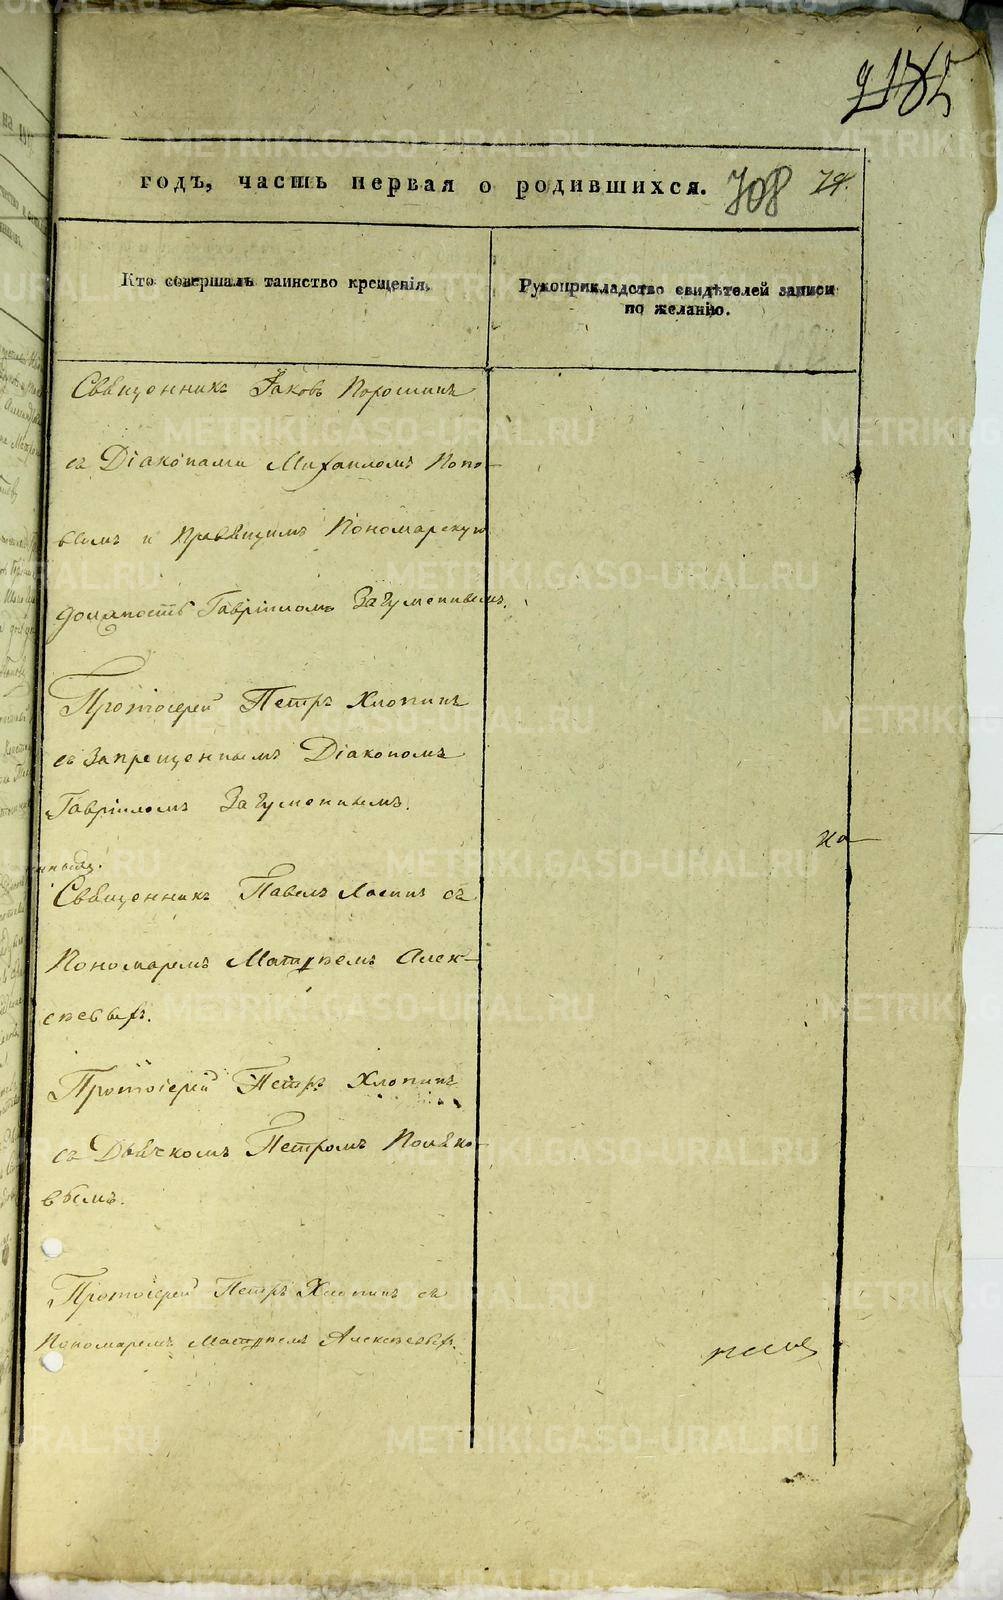 годъ, часть первая о родившихся. 708 74.
Кто совершалъ таинство крещенія.
Рукоприкладство свидѣтелей записи
по желанію.
Священникъ Іаковъ Порошинъ
съ Діаконами Михаиломъ Попо-
вымъ и правящимъ Пономарскую
должность Гавріиломъ Загуменнымъ.
Протоіерей Петръ Хлопинъ
съ Запрещеннымъ Діакономъ
Гавріиломъ Загуменнымъ.
Священникъ Павелъ съ
Пономаремъ Матѳѣемъ Алек-
сѣевыхъ.
Протоіерей Петръ Хлопинъ
съ Дьячкомъ Петромъ Поляко-
вымъ.
Протоіерей Петръ Хлопинъ съ
Пономаремъ Матѳѣемъ Алексѣевыхъ.
METRIKI.GASO-URAL.RU